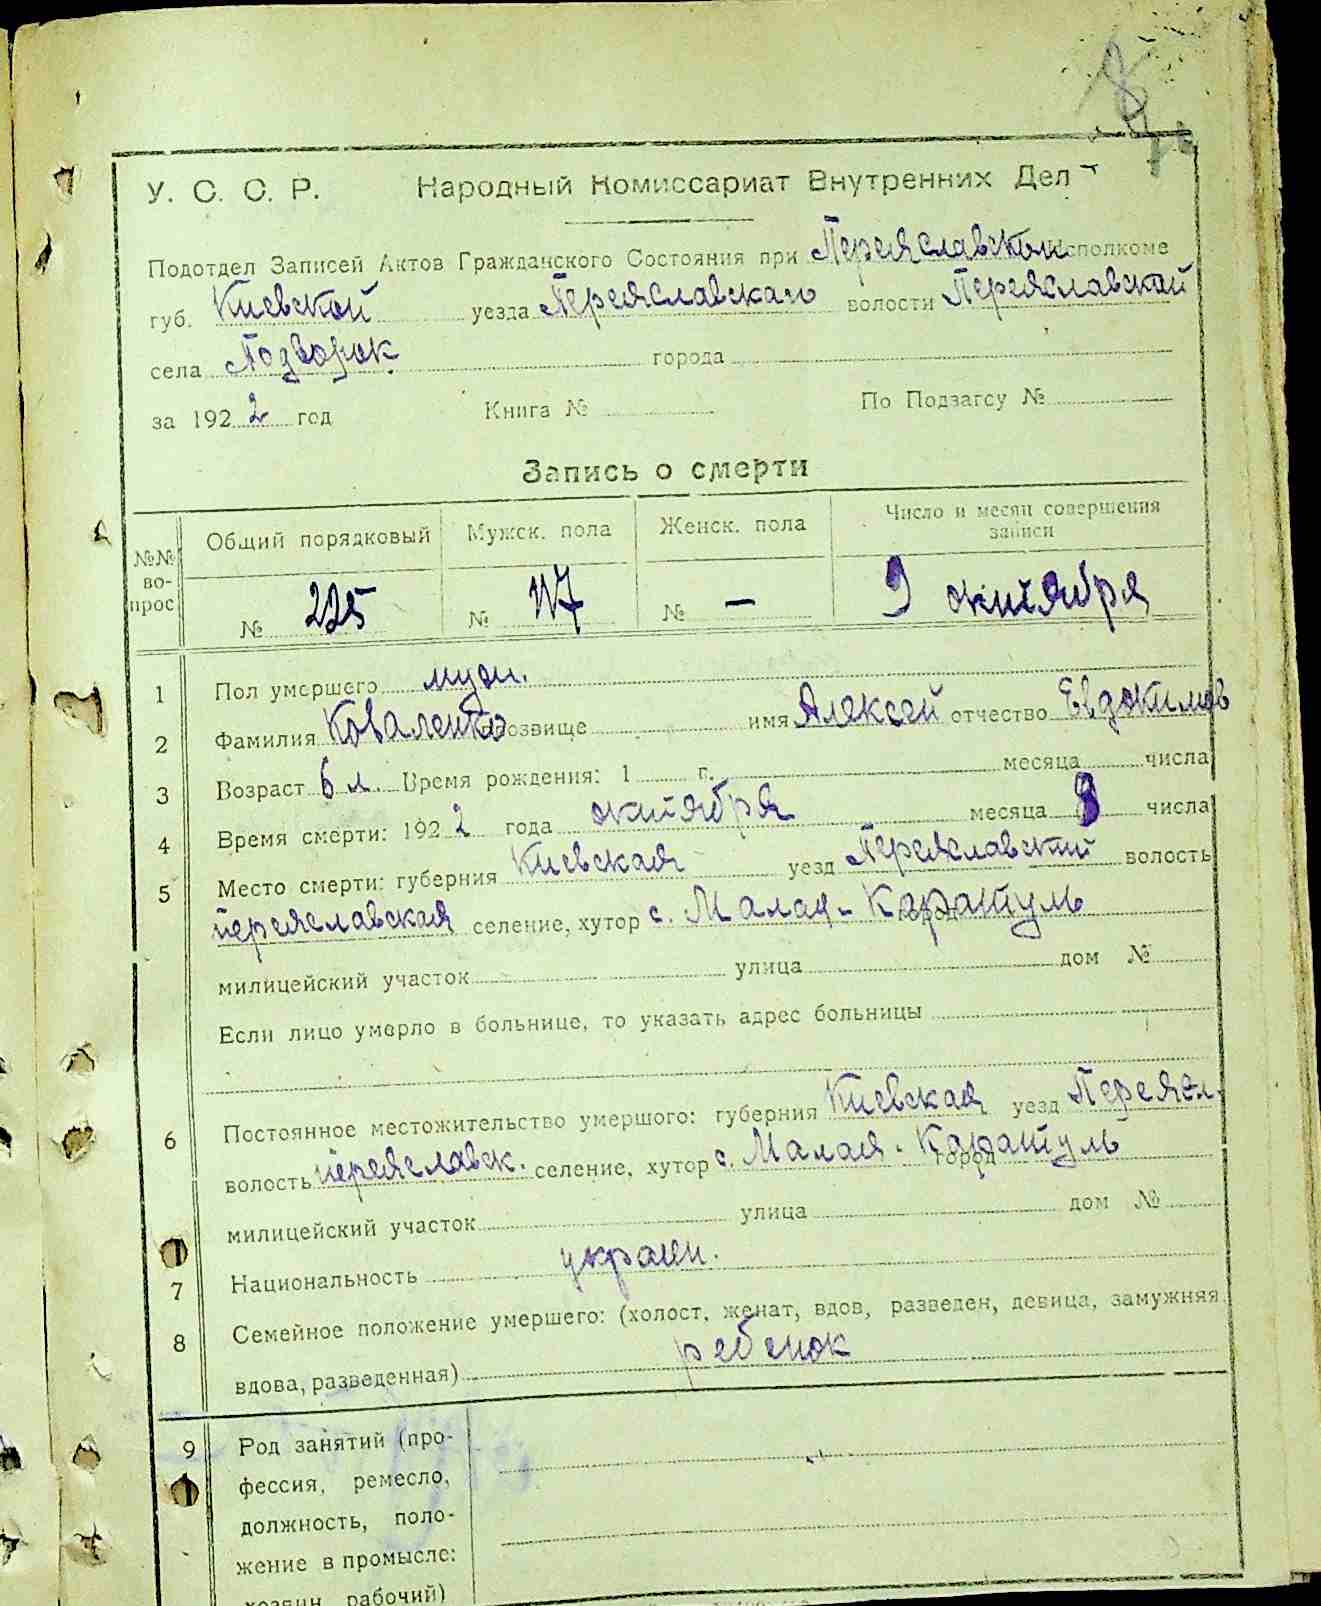 У. С. С. Р. Народный Комиссариат Внутренних Дел
Подотдел Записей Актов Гражданского Состояния при Переяславском исполкоме
губ. Киевской уезда Переяславскаго волости Переяславской
села Подворок города
за 1922 год Книга № По Подзагсу №
Запись о смерти
№№ вопрос Общий порядковый Мужск. пола Женск. пола Число и месяц совершения записи
№ 225 № 117 № — 9 октября
1 Пол умершего муж.
2 Фамилия Коваленко прозвище имя Алексей отчество Евдокимов
3 Возраст 6 л. Время рождения: 1 г. месяца числа
4 Время смерти: 1922 года октября месяца 8 числа
5 Место смерти: губерния Киевская уезд Переяславский волость
переяславская селение, хутор с. Малая-Каратуль
милицейский участок улица дом №
Если лицо умерло в больнице, то указать адрес больницы
6 Постоянное местожительство умершого: губерния Киевская уезд Переясл.
волость переяславск. селение, хутор с. Малая-Каратуль город
милицейский участок улица дом №
7 Национальность украин.
8 Семейное положение умершего: (холост, женат, вдов, разведен, девица, замужняя
вдова, разведенная) ребенок
9 Род занятий (про-
фессия, ремесло,
должность, поло-
жение в промысле:
хозяин рабочий)